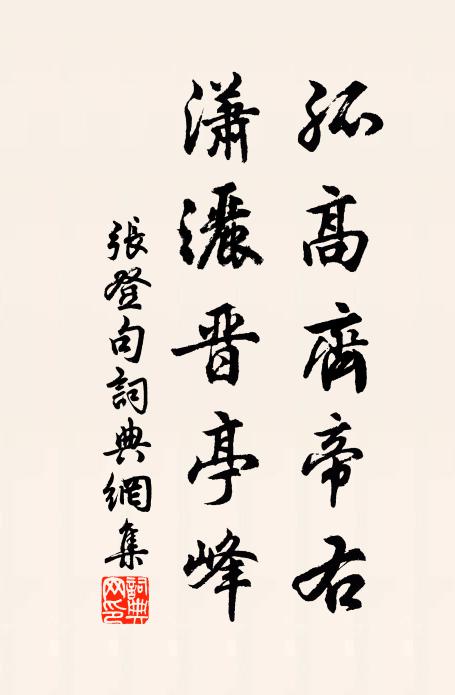 孤高齊帝右
瀟灑晋亭峰
張登句詞典網集
詞典网印